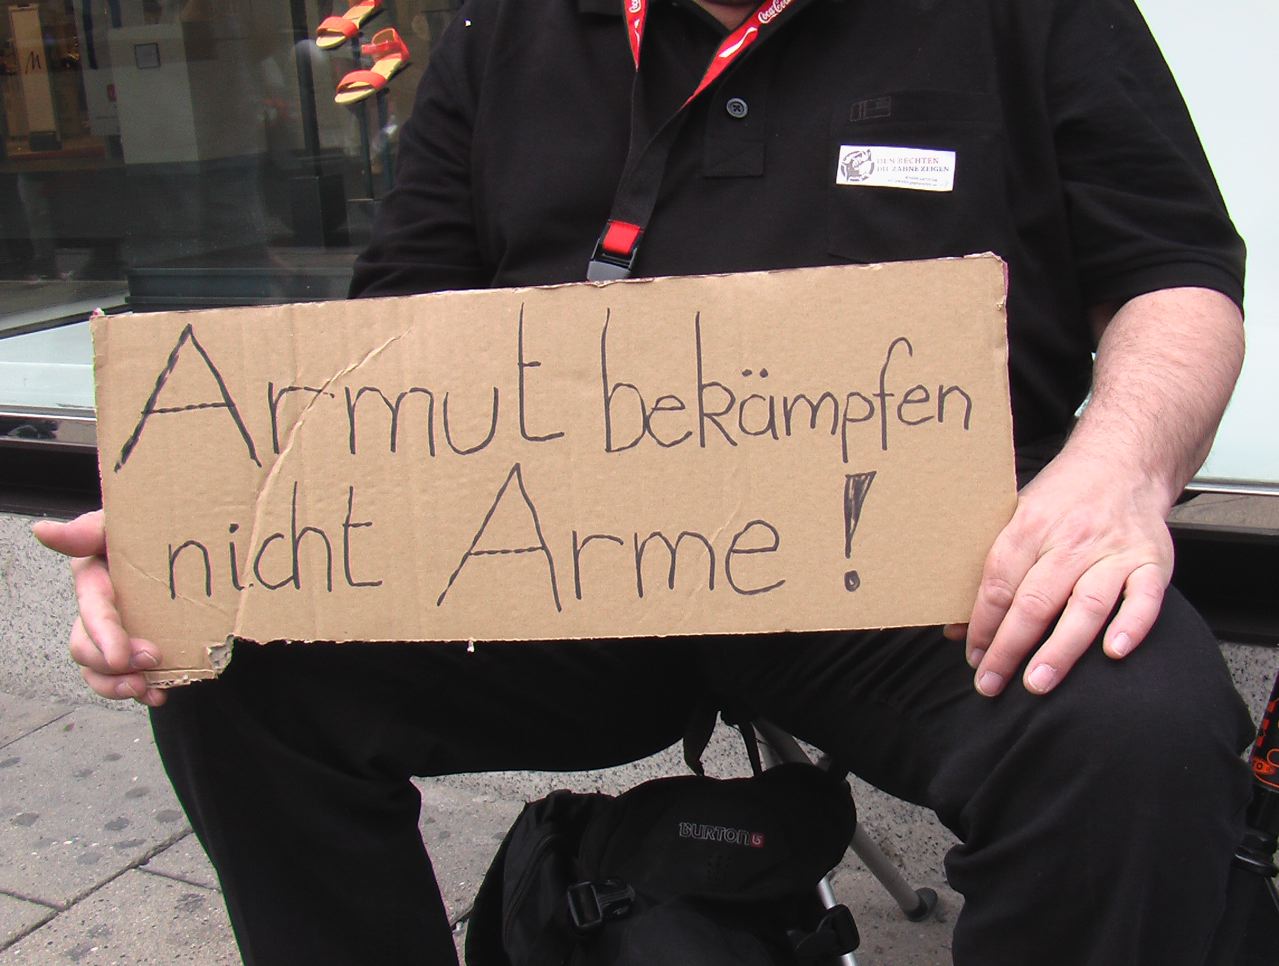 Coca-Cola
DEN RECHTEN
DIE ZÄHNE ZEIGEN
Armut bekämpfen
nicht Arme !
BURTON